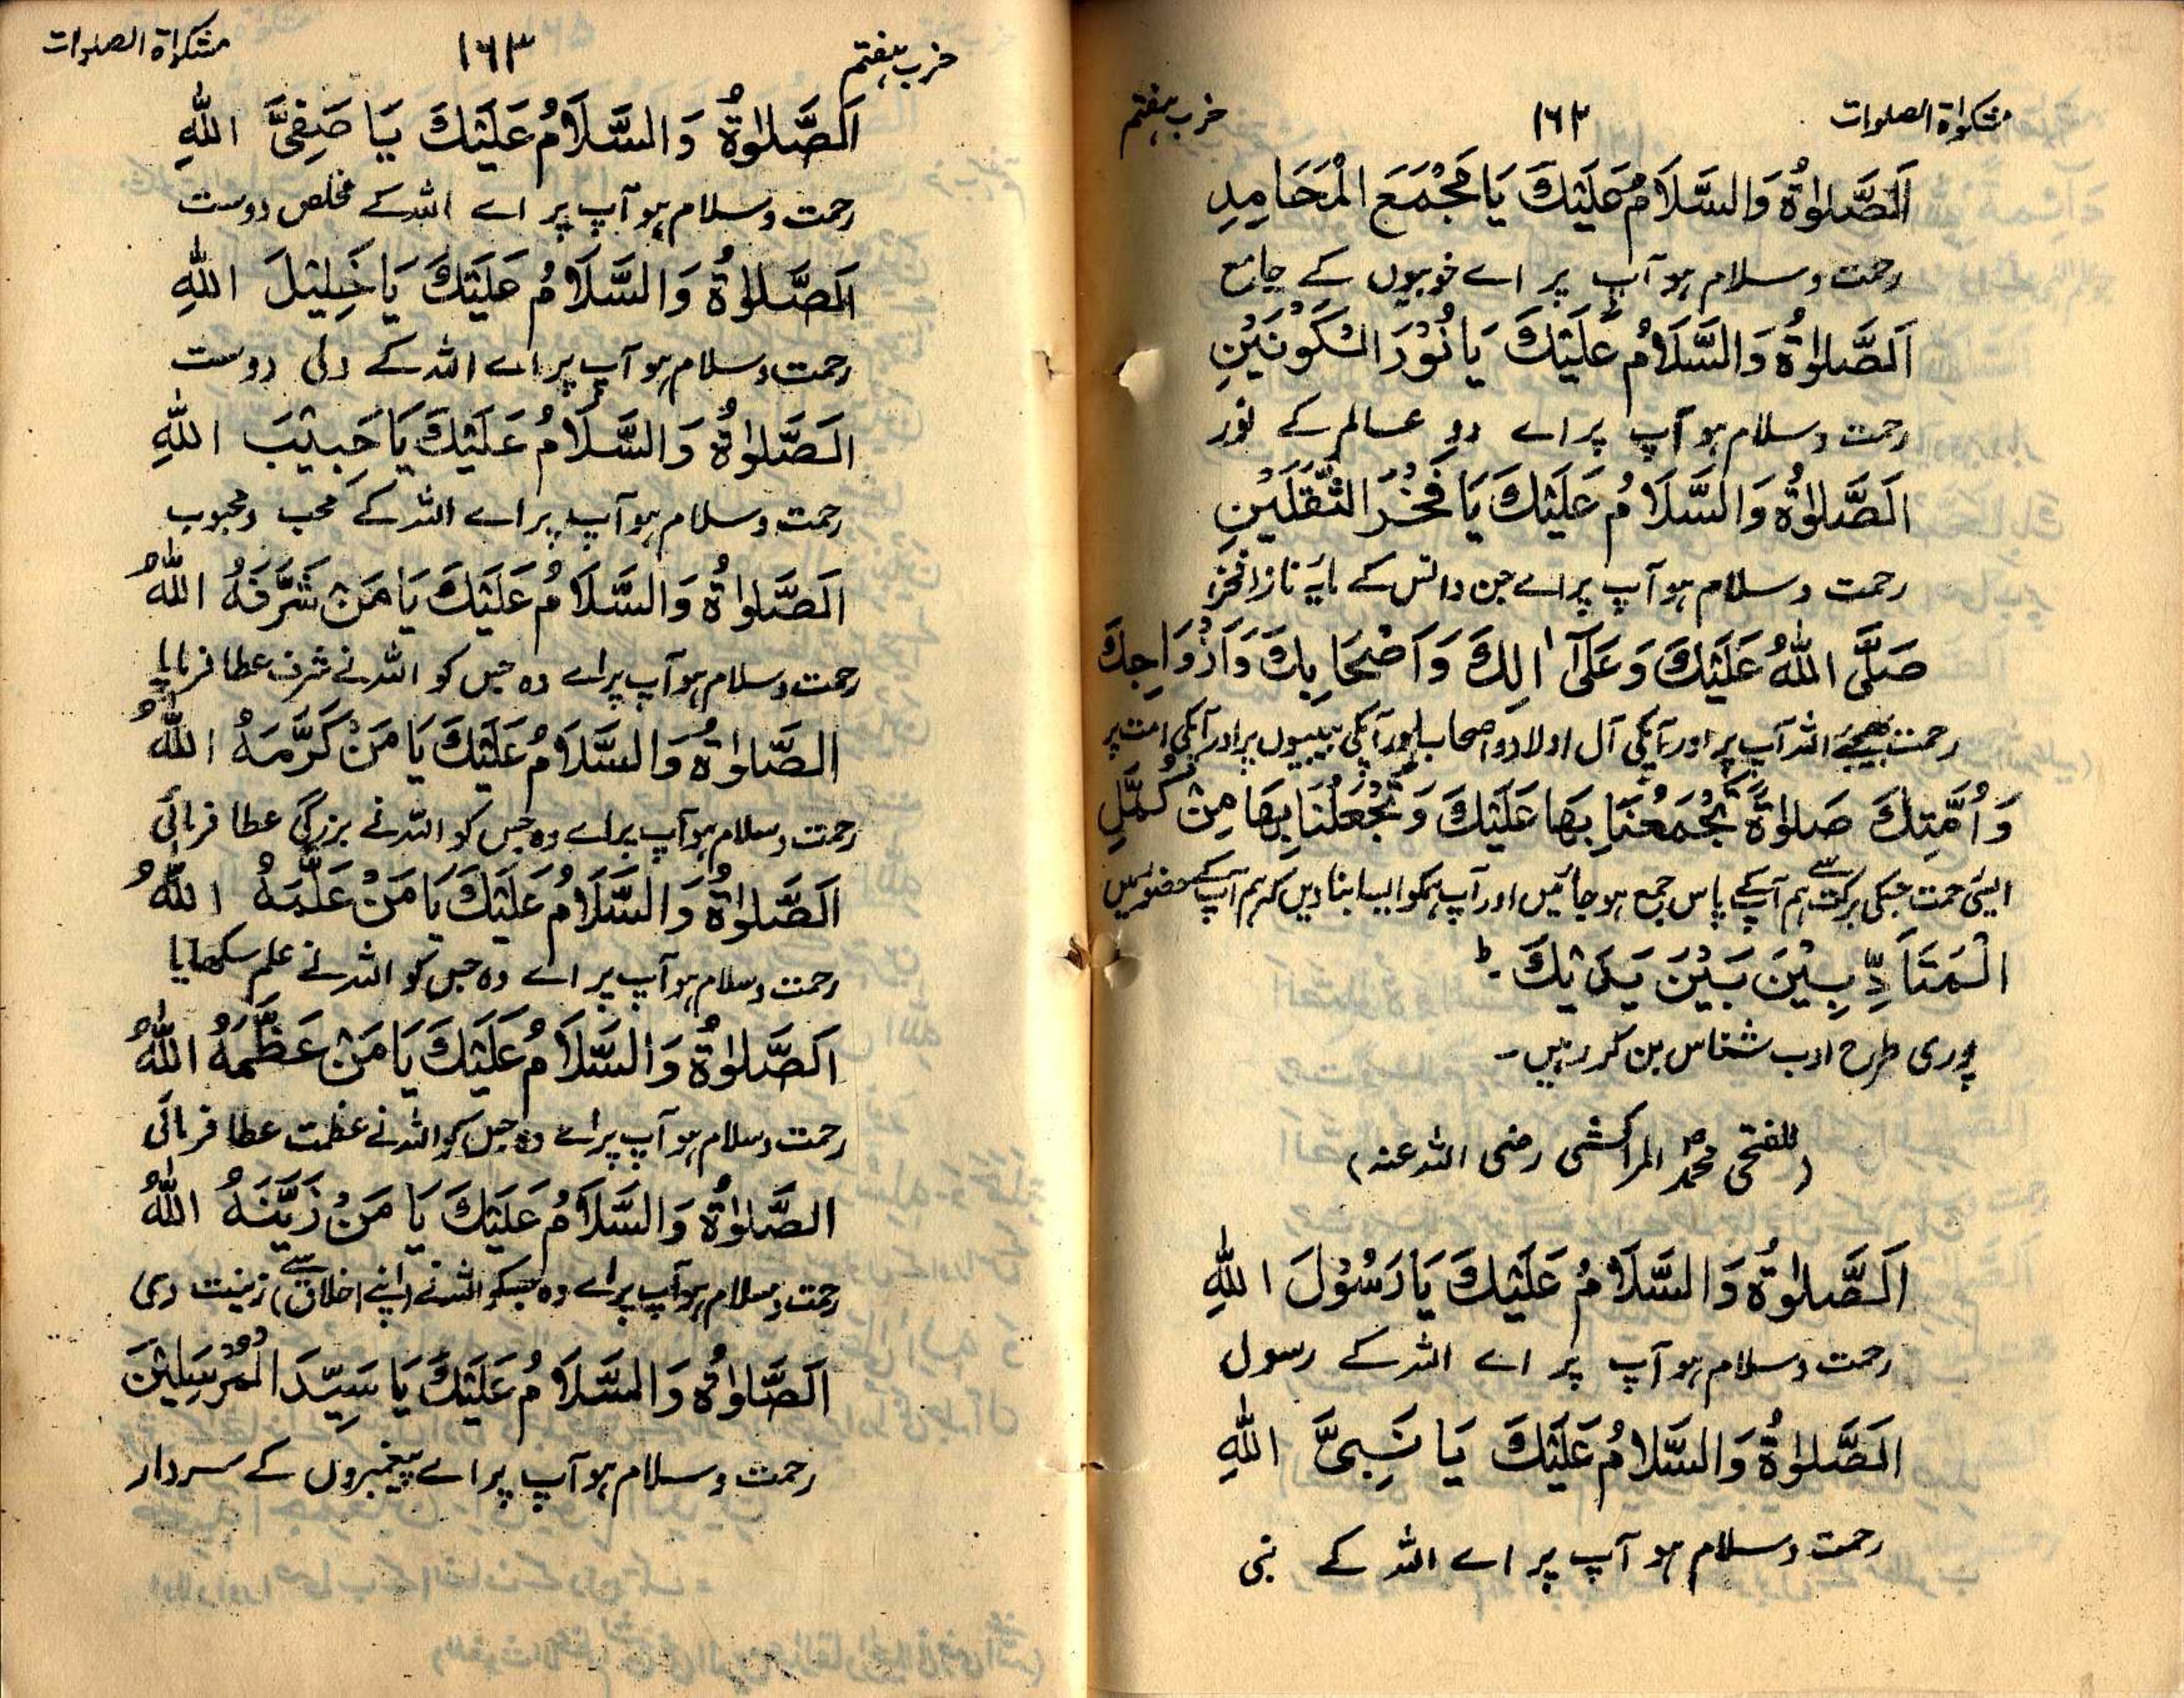 مشکوٰة الصلوات ۱۶۲ حزب ہفتم
اَلصَّلٰوةُ وَالسَّلَامُ عَلَيْكَ يَا مَجْمَعَ الْمَحَامِدِ
رحمت و سلام ہو آپ پر اے خوبیوں کے جامع
اَلصَّلٰوةُ وَالسَّلَامُ عَلَيْكَ يَا نُوْرَ الْكَوْنَيْنِ
رحمت و سلام ہو آپ پر اے دو عالم کے نور
اَلصَّلٰوةُ وَالسَّلَامُ عَلَيْكَ يَا فَخْرَ الثَّقَلَيْنِ
رحمت و سلام ہو آپ پر اے جن و انس کے مایۂ ناز افخر
صَلَّى اللّٰهُ عَلَيْكَ وَعَلَىٰٓ اٰلِكَ وَاَصْحَابِكَ وَاَزْوَاجِكَ
رحمت بھیجے اللہ آپ پر اور آپکی آل اولاد و اصحاب اور آپکی بیبیوں پر اور آپکی امت پر
وَاُمَّتِكَ صَلٰوةً تَجْمَعُنَا بِهَا عَلَيْكَ وَتَجْعَلُنَا بِهَا مِنْ كُمَّلِ
ایسی رحمت جسکی برکت سے ہم آپکے پاس جمع ہو جائیں اور آپ ہمکو ایسا بنا دیں کہ ہم آپ کے حضور میں
الْمُتَاَدِّبِيْنَ بَيْنَ يَدَيْكَ ؕ
پوری طرح ادب شناس بن کر رہیں۔
(للفتحی محمدؐ المراکشی رضی اللہ عنہ)
اَلصَّلٰوةُ وَالسَّلَامُ عَلَيْكَ يَا رَسُوْلَ اللّٰهِ
رحمت و سلام ہو آپ پر اے اللہ کے رسول
اَلصَّلٰوةُ وَالسَّلَامُ عَلَيْكَ يَا نَبِىَّ اللّٰهِ
رحمت و سلام ہو آپ پر اے اللہ کے نبی
حزب ہفتم ۱۶۳ مشکوٰة الصلوات
اَلصَّلٰوةُ وَالسَّلَامُ عَلَيْكَ يَا صَفِىَّ اللّٰهِ
رحمت و سلام ہو آپ پر اے اللہ کے مخلص دوست
اَلصَّلٰوةُ وَالسَّلَامُ عَلَيْكَ يَا خَلِيْلَ اللّٰهِ
رحمت و سلام ہو آپ پر اے اللہ کے دلی دوست
اَلصَّلٰوةُ وَالسَّلَامُ عَلَيْكَ يَا حَبِيْبَ اللّٰهِ
رحمت و سلام ہو آپ پر اے اللہ کے محب و محبوب
اَلصَّلٰوةُ وَالسَّلَامُ عَلَيْكَ يَا مَنْ شَرَّفَهُ اللّٰهُ
رحمت و سلام ہو آپ پر اے وہ جس کو اللہ نے شرف عطا فرمایا
اَلصَّلٰوةُ وَالسَّلَامُ عَلَيْكَ يَا مَنْ كَرَّمَهُ اللّٰهُ
رحمت و سلام ہو آپ پر اے وہ جس کو اللہ نے بزرگی عطا فرمائی
اَلصَّلٰوةُ وَالسَّلَامُ عَلَيْكَ يَا مَنْ عَلَّمَهُ اللّٰهُ
رحمت و سلام ہو آپ پر اے وہ جس کو اللہ نے علم سکھایا
اَلصَّلٰوةُ وَالسَّلَامُ عَلَيْكَ يَا مَنْ عَظَّمَهُ اللّٰهُ
رحمت و سلام ہو آپ پر اے وہ جس کو اللہ نے عظمت عطا فرمائی
اَلصَّلٰوةُ وَالسَّلَامُ عَلَيْكَ يَا مَنْ زَيَّنَهُ اللّٰهُ
رحمت و سلام ہو آپ پر اے وہ جسکو اللہ نے (اپنے اخلاق سے) زینت دی
اَلصَّلٰوةُ وَالسَّلَامُ عَلَيْكَ يَا سَيِّدَ الْمُرْسَلِيْنَ
رحمت و سلام ہو آپ پر اے پیغمبروں کے سردار